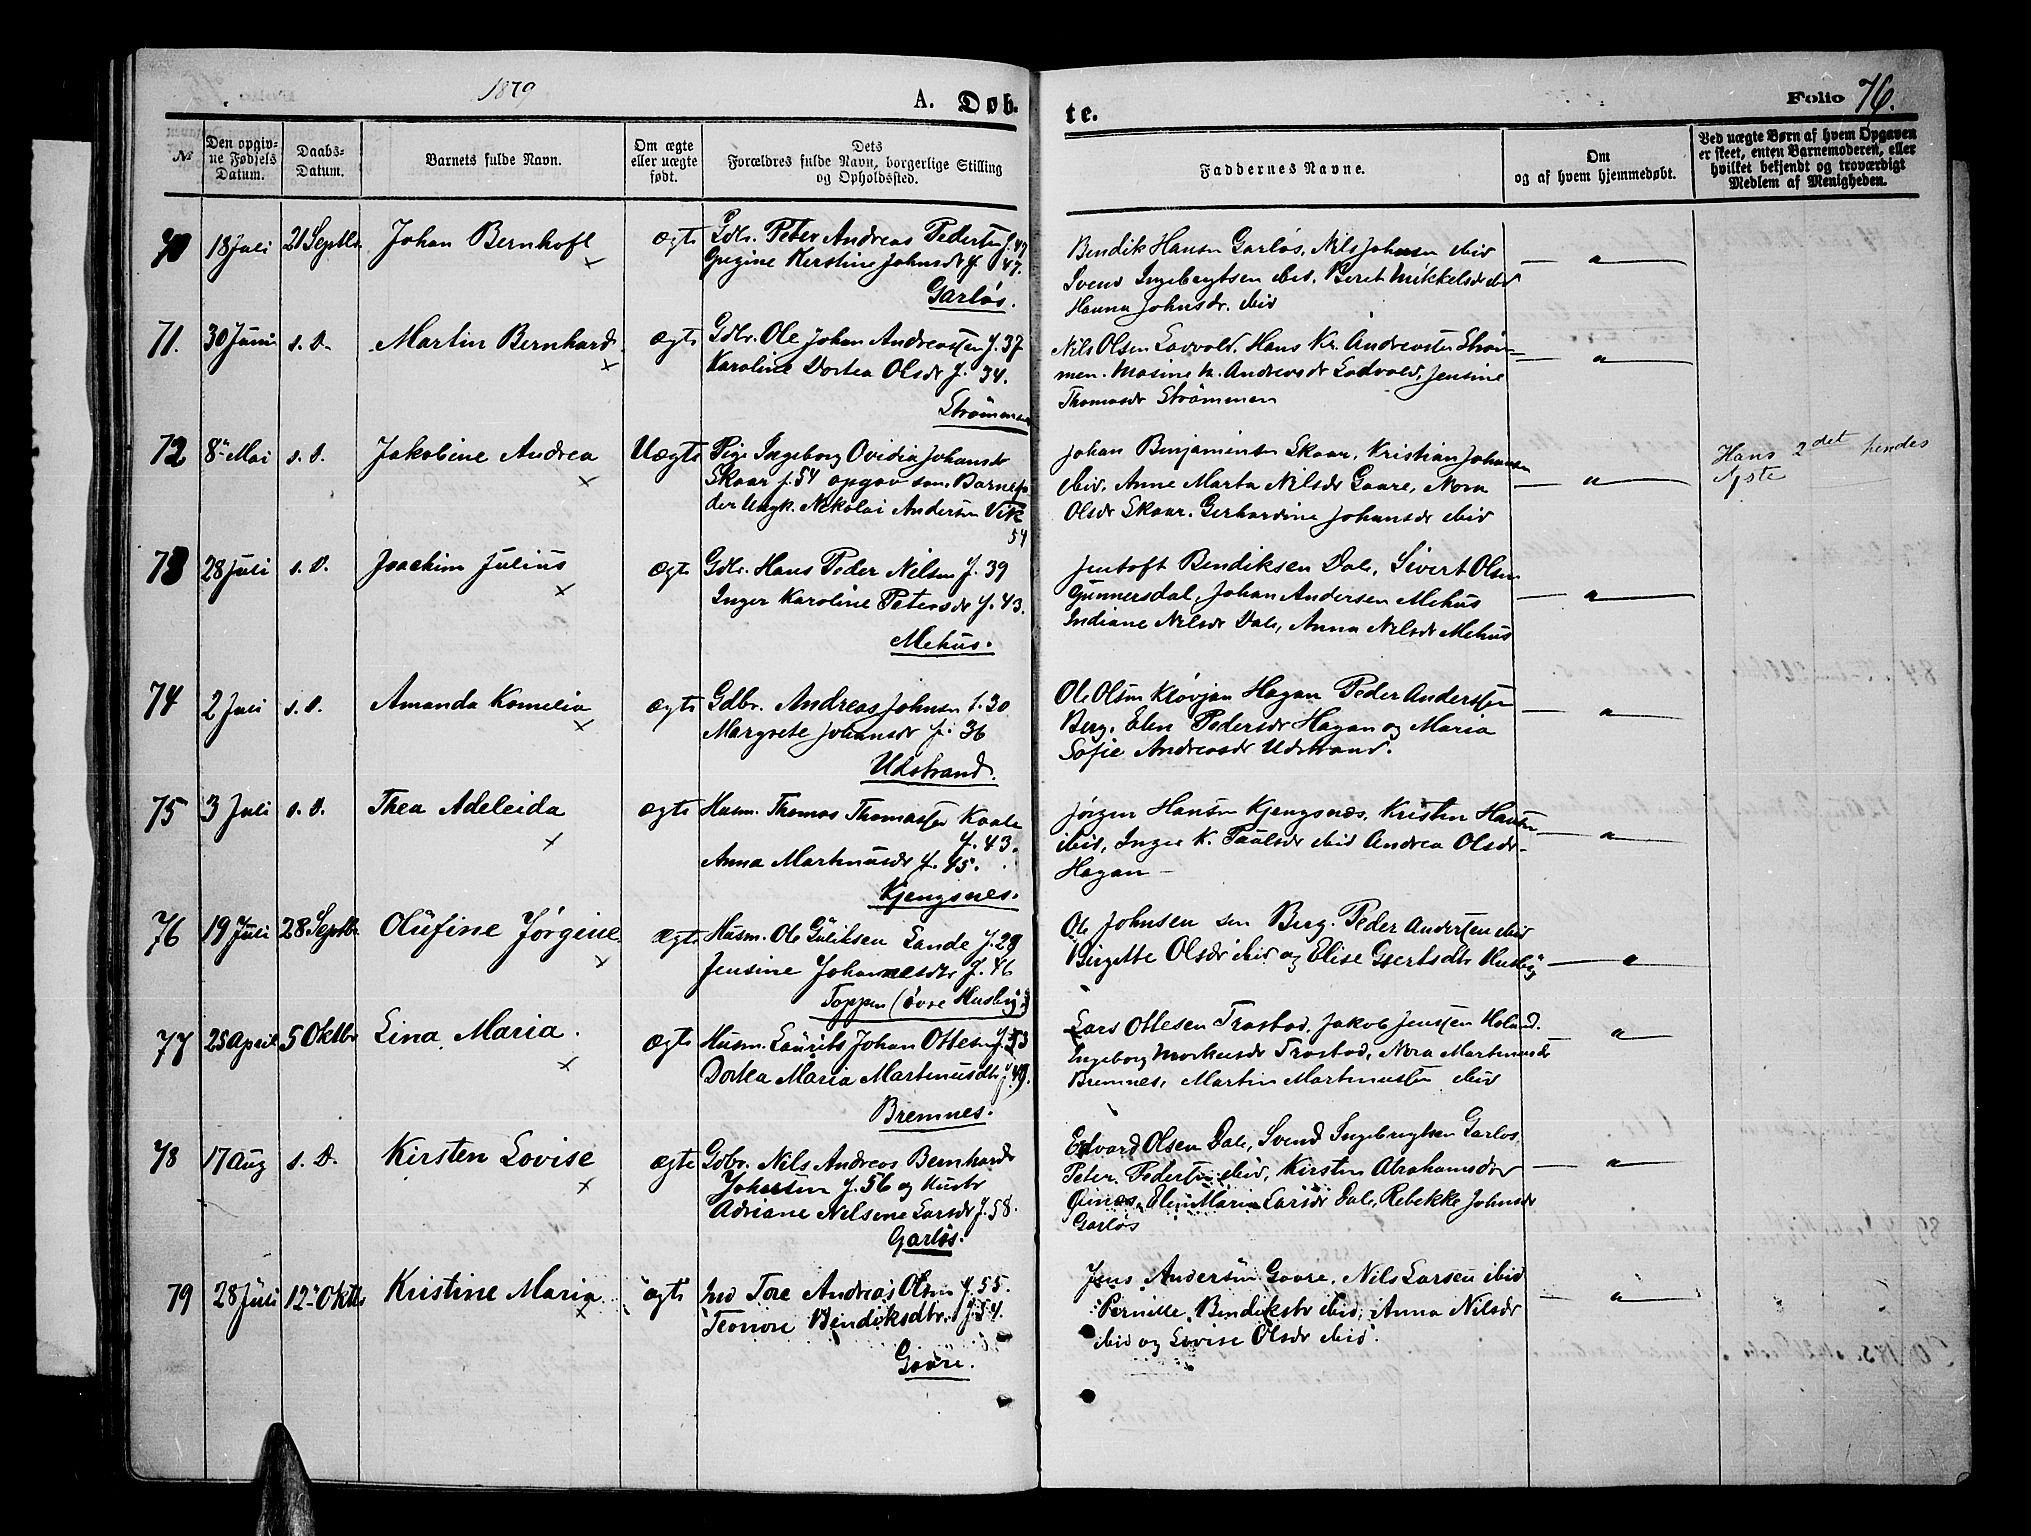 1879
A. Døb-
te.
Folio 76.
№
Den opgiv-
ne Fødsels
Datum.
Daabs-
Datum.
Barnets fulde Navn.
Om ægte
eller uægte
født.
Dets
Forældres fulde Navn, borgerlige Stilling
og Opholdssted.
Faddernes Navne.
Om
og af hvem hjemmedøbt.
Ved uægte Børn af hvem Opgaven
er skeet, enten Barnemoderen, eller
hvilket bekjendt og troværdigt
Medlem af Menigheden.
70 18 Juli 21 Septbr Johan Bernhoft ægte Gdbr. Peter Andreas Pedersen f. 47
Kerstine Johnsdr f. 47.
Garløs.
Bendik Hansen Garløs, Nils Johnsen ibid
Svend Ingebrigtsen ibid, Beret Mikkelsdr ibid
Hanna Johnsdr. ibid
71. 30 Juni s. D. Martin Bernhard ægte Gdbr. Ole Johan Andreassen f. 37
Karoline Dortea Olsdr f. 34.
Strømmen
Nils Olsen Hans Kr. Andreassen Strøm-
men. Andreasdr Jensine
Thomasdr Strømmen
72 8de Mai s. D. Jakobine Andrea Uægte Pige Ingeborg Ovidia Johansdr
Skaar f. 54 opgav som Barnefa
der Ungk. Nikolai Andersen Vik
54
Johan Benjaminsen Skaar, Kristian Johansen
ibid, Anne Marta Nilsdr Gaare, Nora
Olsdr Skaar. Gerhardine Johansdr ibid
Hans 2det hendes
1ste
73 28 Juli s. D. Joachim Julius ægte Gdbr. Hans Peder Nilsen f. 39
Inger Karoline Petersdr f. 43.
Mehus.
Jentoft Bendiksen Dale, Sivert Olsen
Gunnersdal, Johan Andersen Mehus
Indiane Nilsdr Dale, Anna Nilsdr Mehus
74 2 Juli s. D. Amanda Kornelia ægte Gdbr. Andreas Johnsen f. 30
Margrete Johansdr f. 36
Udstrand.
Ole Olsen Hagan Peder Anderssen
Berg, Elen Pedersdr Hagan og Maria
Sofie Andreasdr Udstrand.
75 3 Juli s. D. Thea Adeleida ægte Husm. Thomas Thomassen
f. 43.
Anna Martinusdr f. 45.
Kjengsnes.
Jørgen Hansen Kjengsnæs, Kristen Hansen
ibid, Inger K. Paulsdr ibid Andrea Olsdr
Hagan
76 19 Juli 28 Septbr. Olufine Jørgine ægte Husm. Ole Guliksen Sande f. 29
Jensine Johannesdtr f. 46
Toppen (øvre Husby)
Ole Johnsen sen Berg. Peder Anderssen ibid
Birgitte Olsdr ibid og Elise Husby
77 25 April 5 Oktbr Lina Maria. ægte Husm. Laurits Johan Ottesen f. 53
Dortea Maria Martinusdtr f. 49.
Bremnes.
Lars Ottesen Trostad, Jakob Jenssen
Ingeborg Markusdr Trostad, Nora Martinusdr
Bremnes, Martin Martinussen ibid
78 17 Aug s. D. Kirsten Lovise ægte Gdbr. Nils Andreas Bernhard
Johnsen f. 56 og Hustr
Adriane Nilsine Larsdr f. 58.
Garløs.
Edvard Olsen Dale, Svend Ingebrigtsen Garløs,
Peter Pedersen ibid, Kirsten Abrahamsdtr
Elen Maria Larsdr Dale, Rebekke Johnsdr
Garløs
79 28 Juli 12te Oktbr Kristine Maria ægte Tore Andreas Olsen f. 55.
Bendiksdtr. f. 54.
Gaare.
Jens Andersen Gaare. Nils Larsen ibid
Pernille Bendiksdtr ibid, Anna Nilsdr
ibid og Lovise Olsdr ibid.